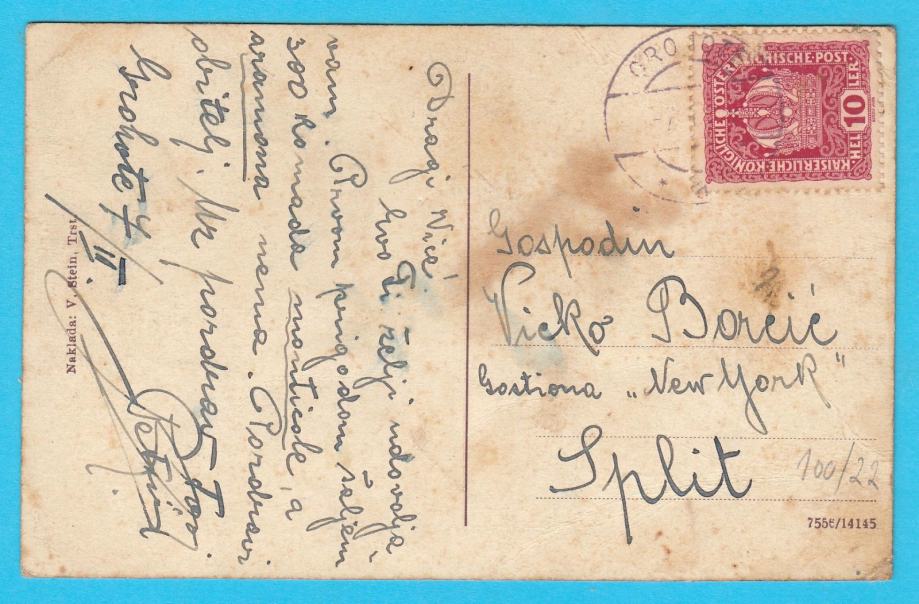 Dragi Vice!
Evo Ti želji udovolja
vam. Prvom prigodom šaljem
300 komada monticole, a
aramona nema. Pozdravi
obitelj. Uz pozdrav Tvoj
Grohote 7/II
Naklada: V. Stein, Trst.
KAISERLICHE KÖNIGLICHE ÖSTERREICHISCHE POST
10
HELLER
GRO
Gospodin
Vicko Borčić
Gostiona „New York"
Split
100/22
755e/14145